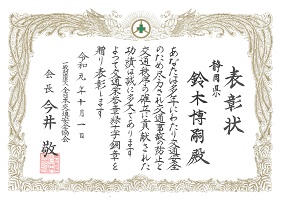 表彰状
静岡県
鈴木博嗣殿
あなたは多年にわたり交通安全
のため尽力され交通事故の防止と
交通秩序の確立に貢献された
功績は誠に多大であります
よって交通栄誉章緑十字銅章を
贈り表彰します
令和元年十月一日
一般財団法人全日本交通安全協会
会長 今井 敬